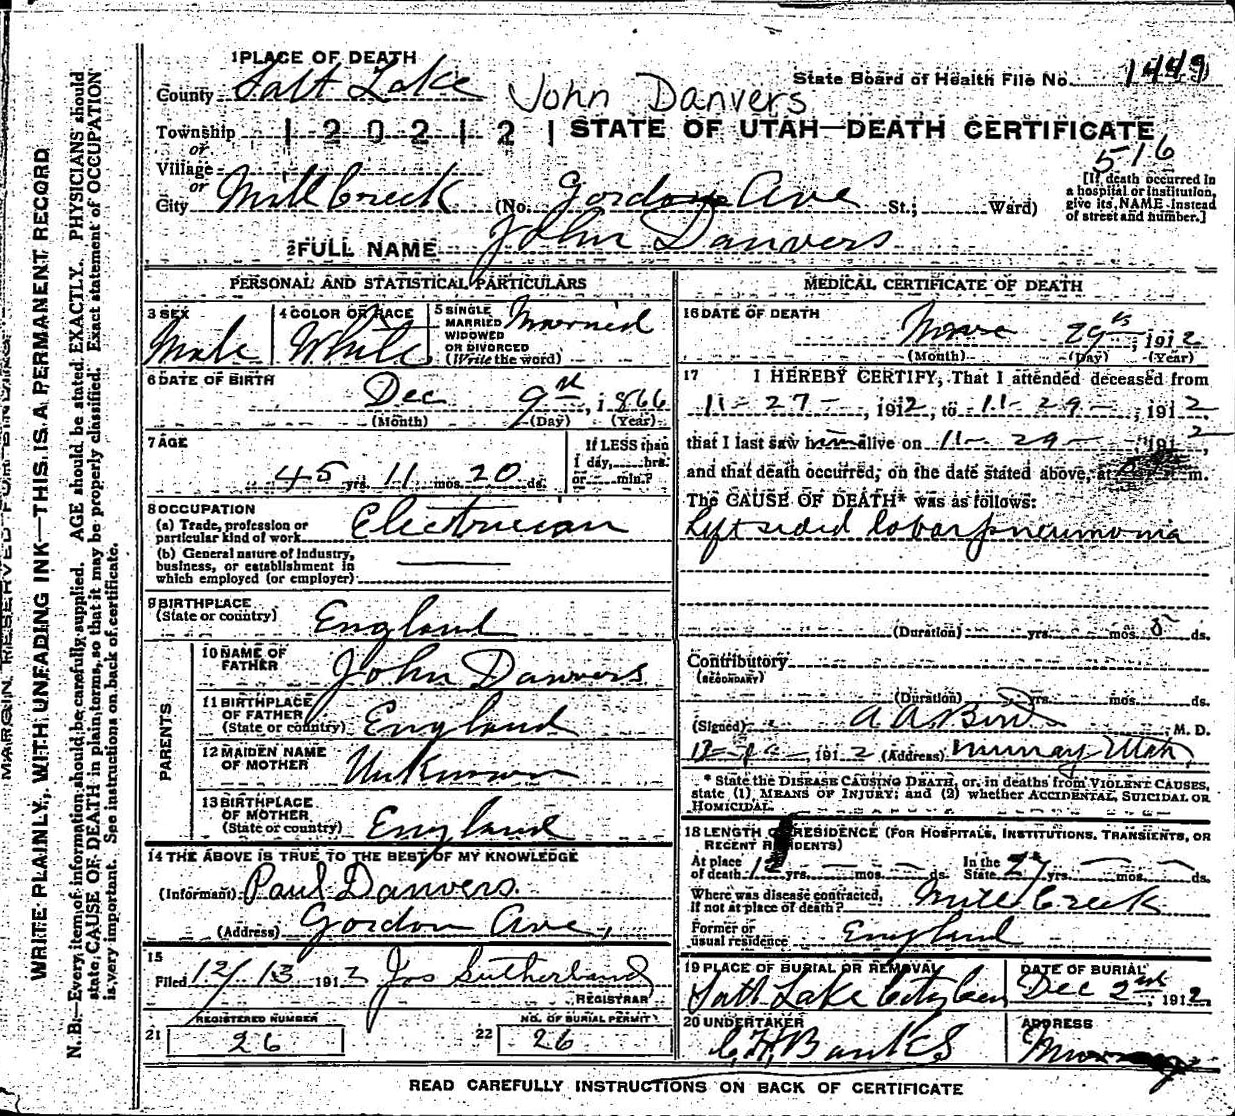 1 PLACE OF DEATH
County Salt Lake
John Danvers
State Board of Health File No. 1449
Township
or
1 2 0 2 1 2 1
STATE OF UTAH—DEATH CERTIFICATE
516
Village
or
City Mill Creek (No. Gordon Ave St.; Ward)
[If death occurred in
a hospital or institution,
give its NAME instead
of street and number.]
2 FULL NAME John Danvers
PERSONAL AND STATISTICAL PARTICULARS
3 SEX
Male
4 COLOR OR RACE
White
5 SINGLE
MARRIED
WIDOWED
OR DIVORCED
(Write the word)
Married
6 DATE OF BIRTH
Dec 9th, 1866
(Month) (Day) (Year)
7 AGE
45 yrs. 11 mos. 20 ds.
If LESS than
1 day, hrs.
or min.?
8 OCCUPATION
(a) Trade, profession or
particular kind of work Electrician
(b) General nature of industry,
business, or establishment in
which employed (or employer)
9 BIRTHPLACE
(State or country) England
PARENTS
10 NAME OF
FATHER John Danvers
11 BIRTHPLACE
OF FATHER
(State or country) England
12 MAIDEN NAME
OF MOTHER Unknown
13 BIRTHPLACE
OF MOTHER
(State or country) England
14 THE ABOVE IS TRUE TO THE BEST OF MY KNOWLEDGE
(Informant) Paul Danvers
(Address) Gordon Ave,
15
Filed 12/13 1912 Jos Sutherland
REGISTRAR
REGISTERED NUMBER
21 26
NO. OF BURIAL PERMIT
22 26
MEDICAL CERTIFICATE OF DEATH
16 DATE OF DEATH
29th, 1912
(Month) (Day) (Year)
17 I HEREBY CERTIFY, That I attended deceased from
11-27-, 1912, to 11-29-, 1912
that I last saw him alive on 11-29- 1912,
and that death occurred, on the date stated above, at m.
The CAUSE OF DEATH* was as follows:
Left sided lobar pneumonia
(Duration) yrs. mos. ds.
Contributory
(SECONDARY)
(Duration) yrs. mos. ds.
(Signed) A A Bird, M. D.
1912 (Address) Murray Utah
* State the DISEASE CAUSING DEATH, or, in deaths from VIOLENT CAUSES,
state (1) MEANS OF INJURY; and (2) whether ACCIDENTAL, SUICIDAL OR
HOMICIDAL.
18 LENGTH OF RESIDENCE (FOR HOSPITALS, INSTITUTIONS, TRANSIENTS, OR
RECENT RESIDENTS)
At place
of death yrs. mos. ds.
In the
State yrs. mos. ds.
Where was disease contracted,
if not at place of death? Mill Creek
Former or
usual residence England
19 PLACE OF BURIAL OR REMOVAL
Salt Lake City Cem
DATE OF BURIAL
Dec 2nd, 1912
20 UNDERTAKER
Banks
ADDRESS
Murray
READ CAREFULLY INSTRUCTIONS ON BACK OF CERTIFICATE
MARGIN RESERVED FOR BINDING
WRITE PLAINLY, WITH UNFADING INK—THIS IS A PERMANENT RECORD
N. B.—Every item of information should be carefully supplied. AGE should be stated EXACTLY. PHYSICIANS should
state CAUSE OF DEATH in plain terms, so that it may be properly classified. Exact statement of OCCUPATION
is very important. See instructions on back of certificate.